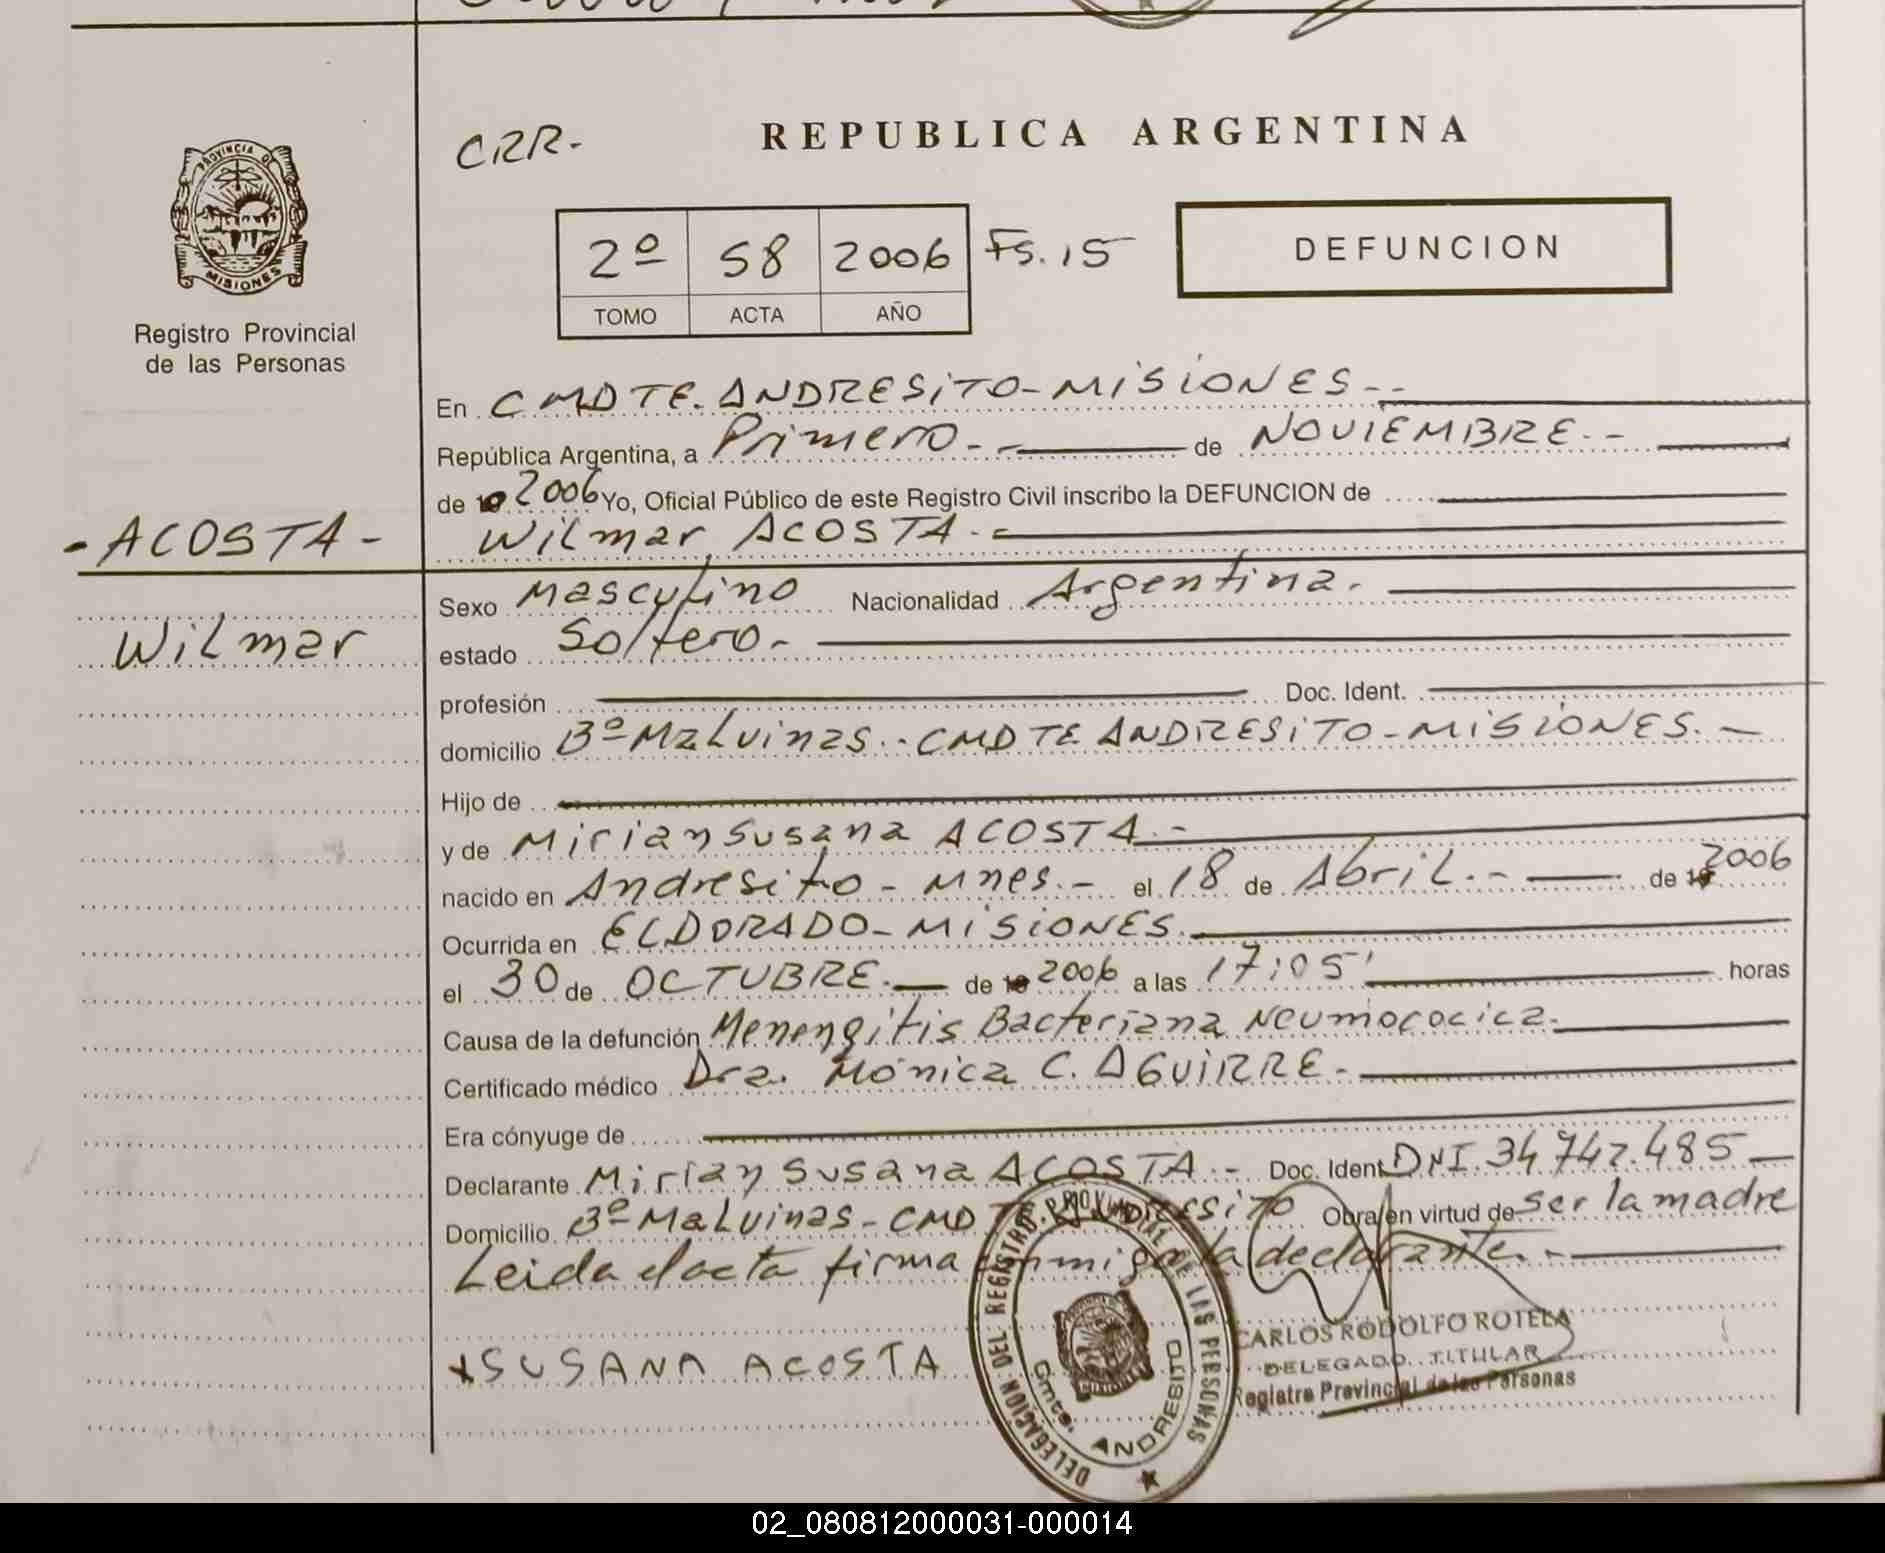 PROVINCIA DE
MISIONES
Registro Provincial
de las Personas
CRR.-
REPUBLICA ARGENTINA
2º 58 2006 Fs. 15
TOMO ACTA AÑO
DEFUNCION
En CMDTE. ANDRESITO-MISIONES.-
República Argentina, a Primero.- de NOVIEMBRE.-
de 19 2006 Yo, Oficial Público de este Registro Civil inscribo la DEFUNCION de
-ACOSTA- Wilmar ACOSTA.-
Sexo Masculino Nacionalidad Argentina.
Wilmar estado Soltero.-
profesión Doc. Ident.
domicilio Bº Malvinas.-CMDTE ANDRESITO-MISIONES.-
Hijo de
y de Mirian Susana ACOSTA.-
nacido en Andresito-Mnes.- el 18 de Abril.- de 19 2006
Ocurrida en ELDORADO-MISIONES.
el 30 de OCTUBRE.- de 19 2006 a las 17:05' horas
Causa de la defunción Menengitis Bacteriana Neumococica.
Certificado médico Dra. Mónica C. AGUIRRE.-
Era cónyuge de
Declarante Mirian Susana ACOSTA.- Doc. Ident. DNI. 34.742.485
Domicilio Bº Malvinas-CMDTE. ANDRESITO Obra en virtud de ser la madre
Leida el acta firma conmigo la declarante.-
CARLOS RODOLFO ROTELA
DELEGADO TITULAR
Registro Provincial de las Personas
x SUSANA ACOSTA
DELEGACION DEL REGISTRO PROVINCIAL DE LAS PERSONAS
Cmte. ANDRESITO
02_080812000031-000014